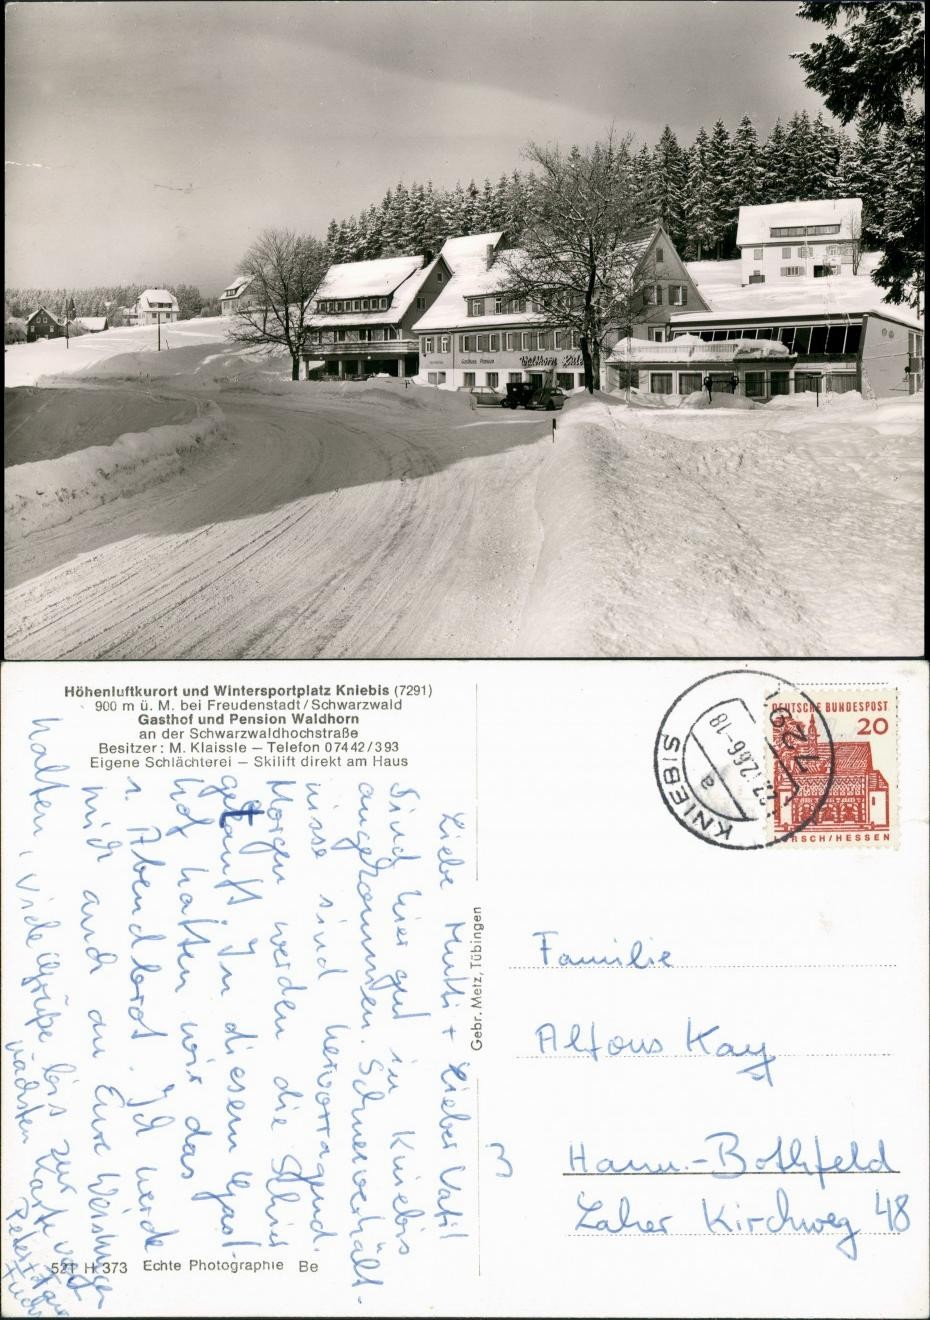 Gasthaus Pension
Waldhorn
Höhenluftkurort und Wintersportplatz Kniebis (7291)
900 m ü. M. bei Freudenstadt/Schwarzwald
Gasthof und Pension Waldhorn
an der Schwarzwaldhochstraße
Besitzer: M. Klaissle – Telefon 07442/393
Eigene Schlächterei – Skilift direkt am Haus
Liebe Mutti + Lieber Vati!
Sind hier gut in Kniebis
angekommen. Schneeverhält-
nisse sind hervorragend.
Morgen werden die Schier
getauft. In diesem Gast-
hof hatten wir das
1. Abendbrot. Ich werde
mich auch an Eure Weisungen
halten, viele Grüße bis zur
nächsten Karte von
Peter +
521 H 373 Echte Photographie Be
Gebr. Metz, Tübingen
7291
KNIEBIS
a
27.12.66-18
DEUTSCHE BUNDESPOST
20
LORSCH/HESSEN
Familie
Alfons Kay
3
Hann.-Bothfeld
Laher Kirchweg 48